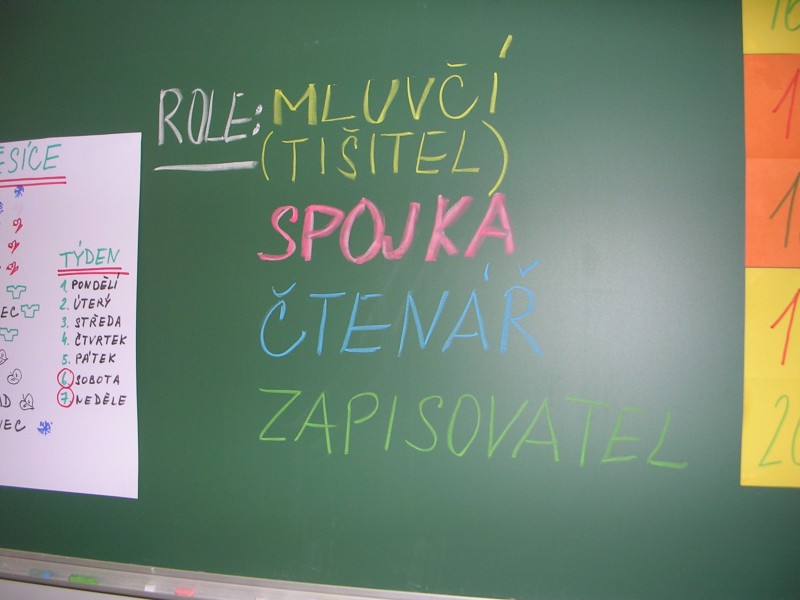 ROLE: MLUVČÍ
(TIŠITEL)
SPOJKA
ČTENÁŘ
ZAPISOVATEL
TÝDEN
1. PONDĚLÍ
2. ÚTERÝ
3. STŘEDA
4. ČTVRTEK
5. PÁTEK
6. SOBOTA
7. NEDĚLE